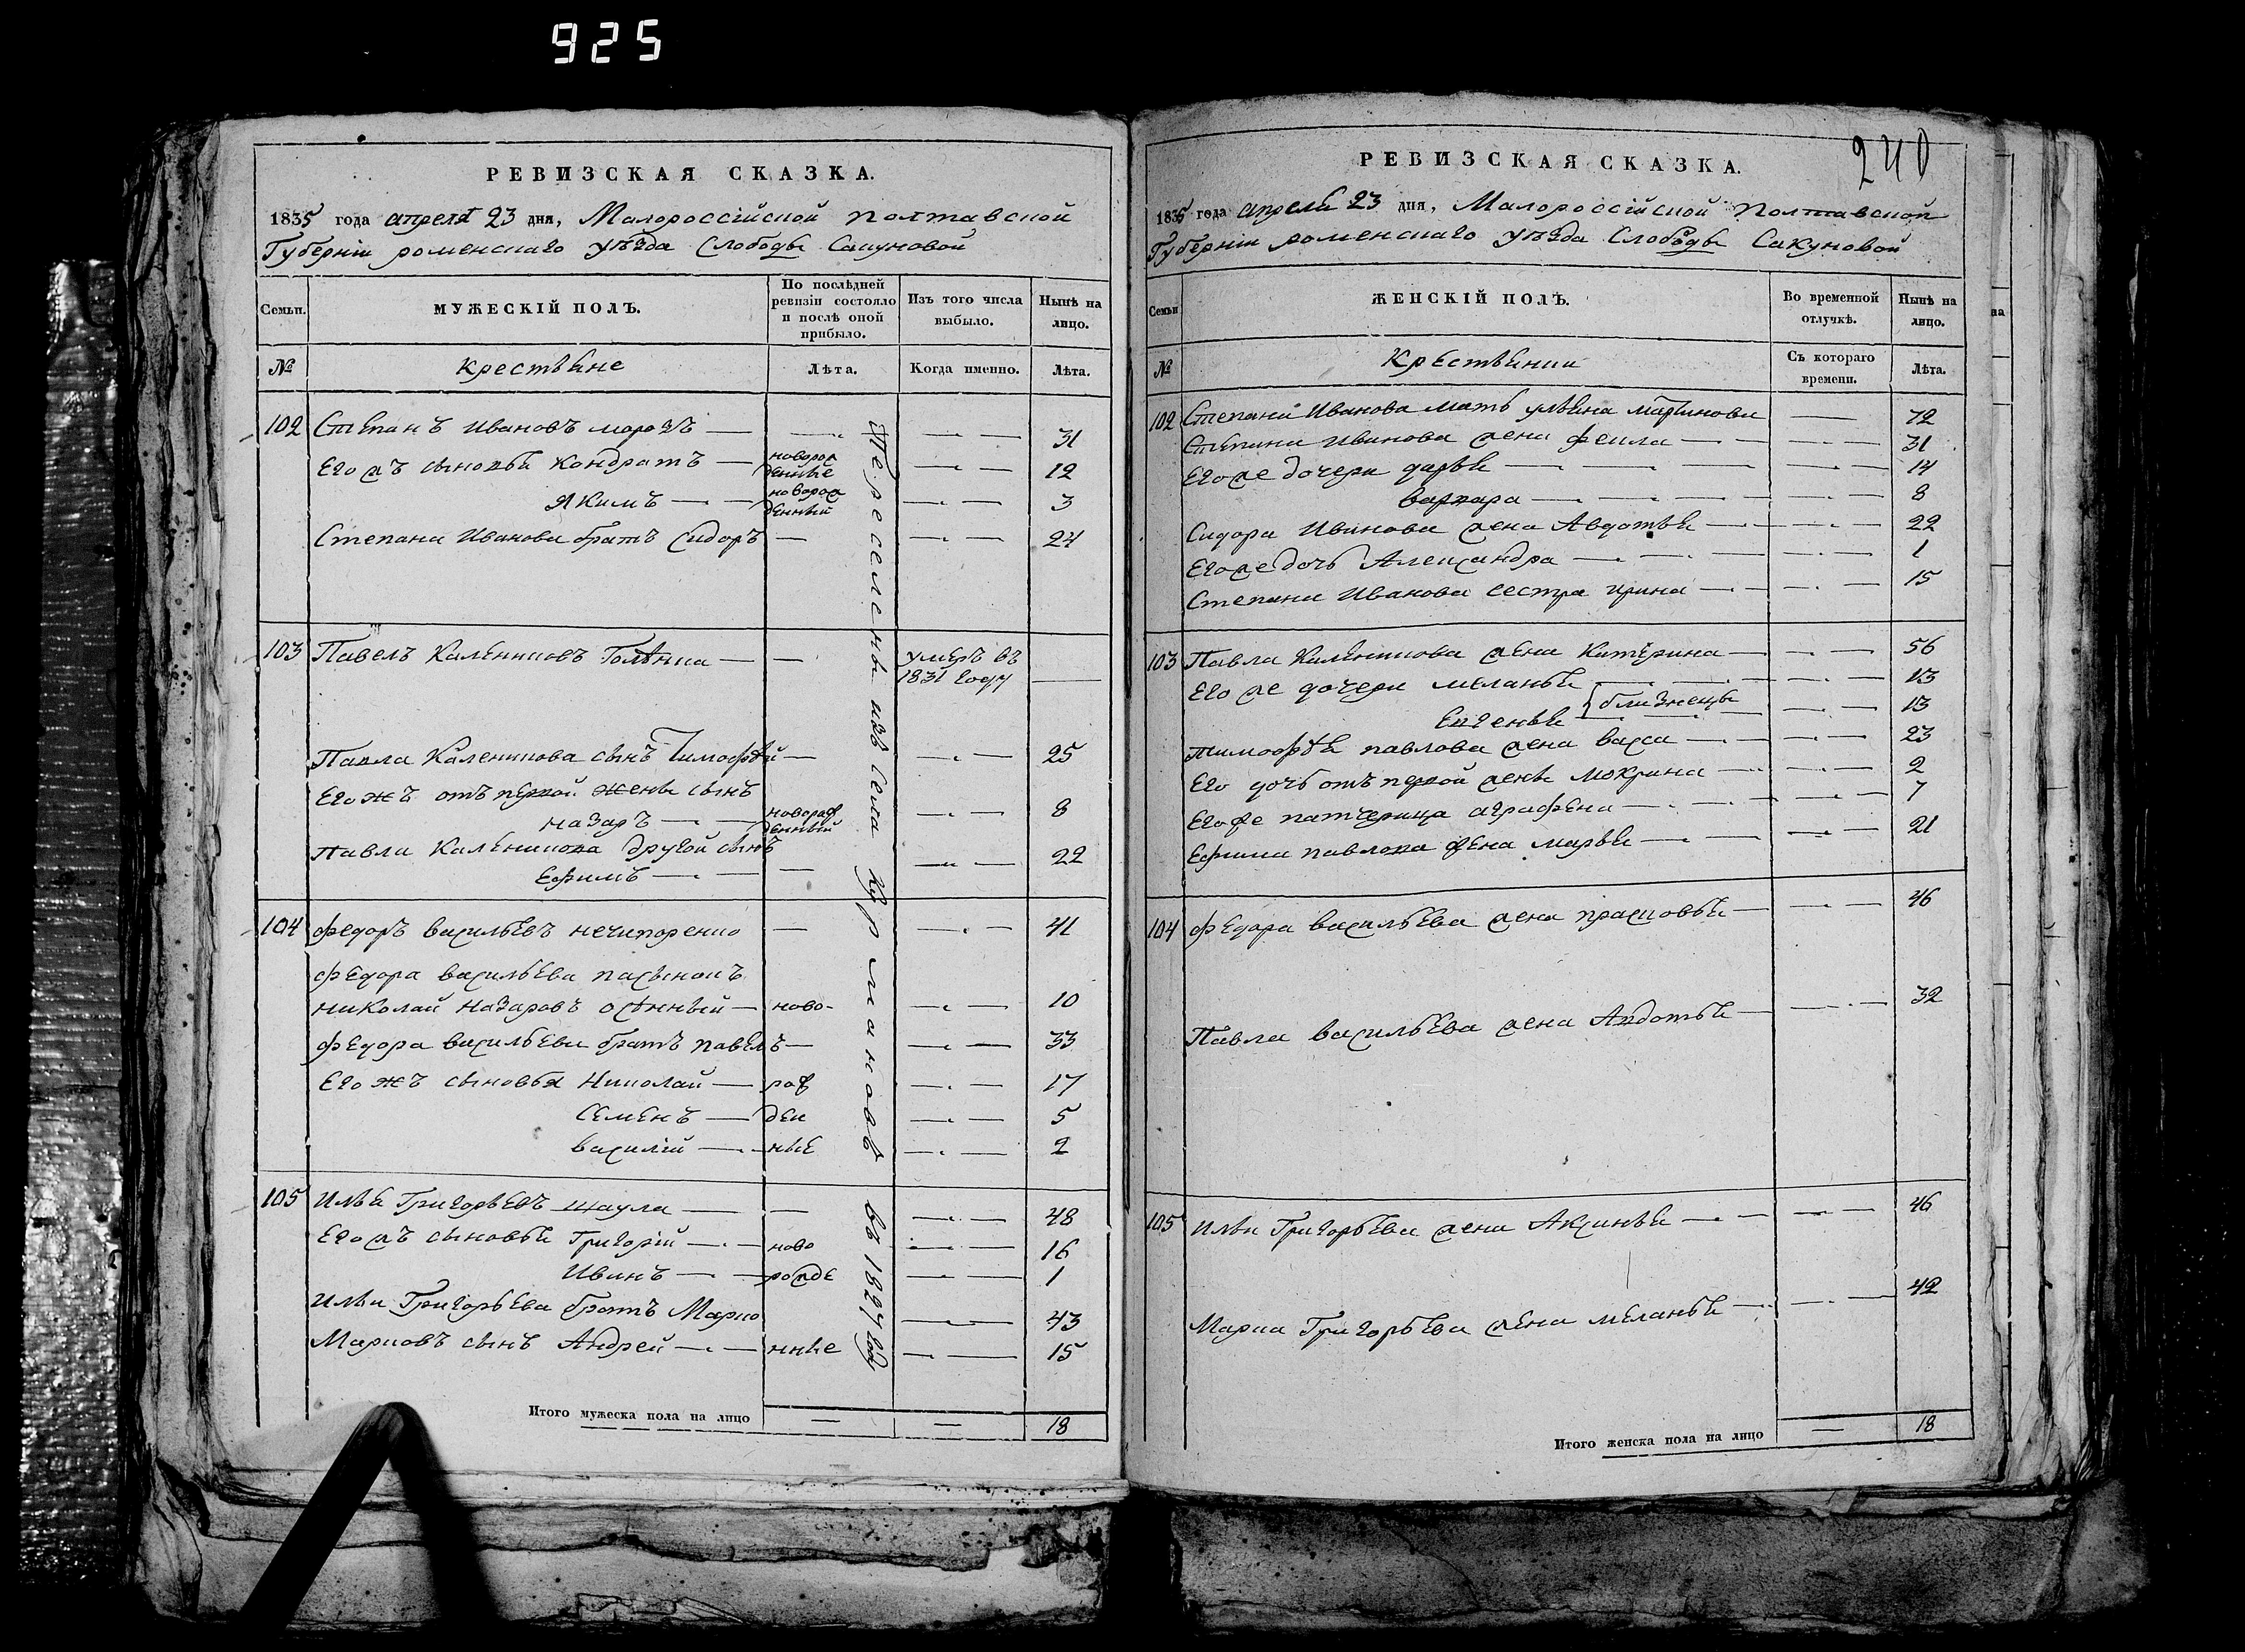 925
РЕВИЗСКАЯ СКАЗКА.
1835 года апреля 23 дня, Малороссійской полтавской
Губерніи роменскаго уѣзда Слободы Сакуновой
Семьи.
МУЖЕСКІЙ ПОЛЪ.
По послѣдней
ревизіи состояло
и послѣ оной
прибыло.
Изъ того числа
выбыло.
Нынѣ на
лицо.
№
крестьяне
Лѣта.
Когда именно.
Лѣта.
Переселены изъ села Курмановъ въ 1827 году
102 Степанъ Ивановъ морозъ — — — 31
Его жъ сыновья Кондратъ — новорож
денные — 12
Якимъ — новорож
денный — 3
Степана Иванова братъ Сидоръ — — 24
103 Павелъ Калениковъ Голѣнка — — умеръ въ
1831 году —
Павла Каленикова сынъ Тимофѣй — — 25
Его жъ отъ первой жены сынъ
назаръ — новорож
денный — 8
Павла Каленикова другой сынъ
Ефимъ — — — 22
104 федоръ васильевъ нечипоренко — — 41
федора васильева пасынокъ
николай назаровъ осѣнный — ново- — 10
федора васильева братъ павелъ — — 33
Его жъ сыновья Николай — рож — 17
Семенъ — ден — 5
василій — ные — 2
105 Илья Григорьевъ шаула — — — 48
Его жъ сыновья Григорій — ново — 16
Иванъ — рожде — 1
Ильи Григорьева братъ Марко — 43
Марковъ сынъ Андрей — нные — 15
Итого мужеска пола на лицо — — 18
240
РЕВИЗСКАЯ СКАЗКА.
1835 года апреля 23 дня, Малороссійской Полтавской
Губерніи роменскаго уѣзда Слободы Сакуновой
Семьи
ЖЕНСКІЙ ПОЛЪ.
Во временной
отлучкѣ.
Нынѣ на
лицо.
№
Крестьянки
Съ котораго
времени.
Лѣта.
102 Степана Иванова мать ульяна мартинова — 72
Степана Иванова жена фекла — — 31
Его же дочери дарья — — 14
варвара — — 8
Сидора Иванова жена Авдотья — — 22
Его же дочь Александра — — 1
Степана Иванова сестра ирина — — 15
103 Павла Каленикова жена Катерина — — 56
Его же дочери меланья — — 13
Евгенья } близнецы — — 13
тимофѣя павлова жена васса — — 23
Его дочь отъ первой жены мокрина — — 2
Его же патчерица аграфена — — 7
Ефима павлова жена марья — — 21
104 федора васильева жена прасковья — — 46
Павла васильева жена Авдотья — — 32
105 Ильи Григорьева жена Аксинья — — 46
Марка Григорьева жена меланья — — 42
Итого женска пола на лицо — 18
на